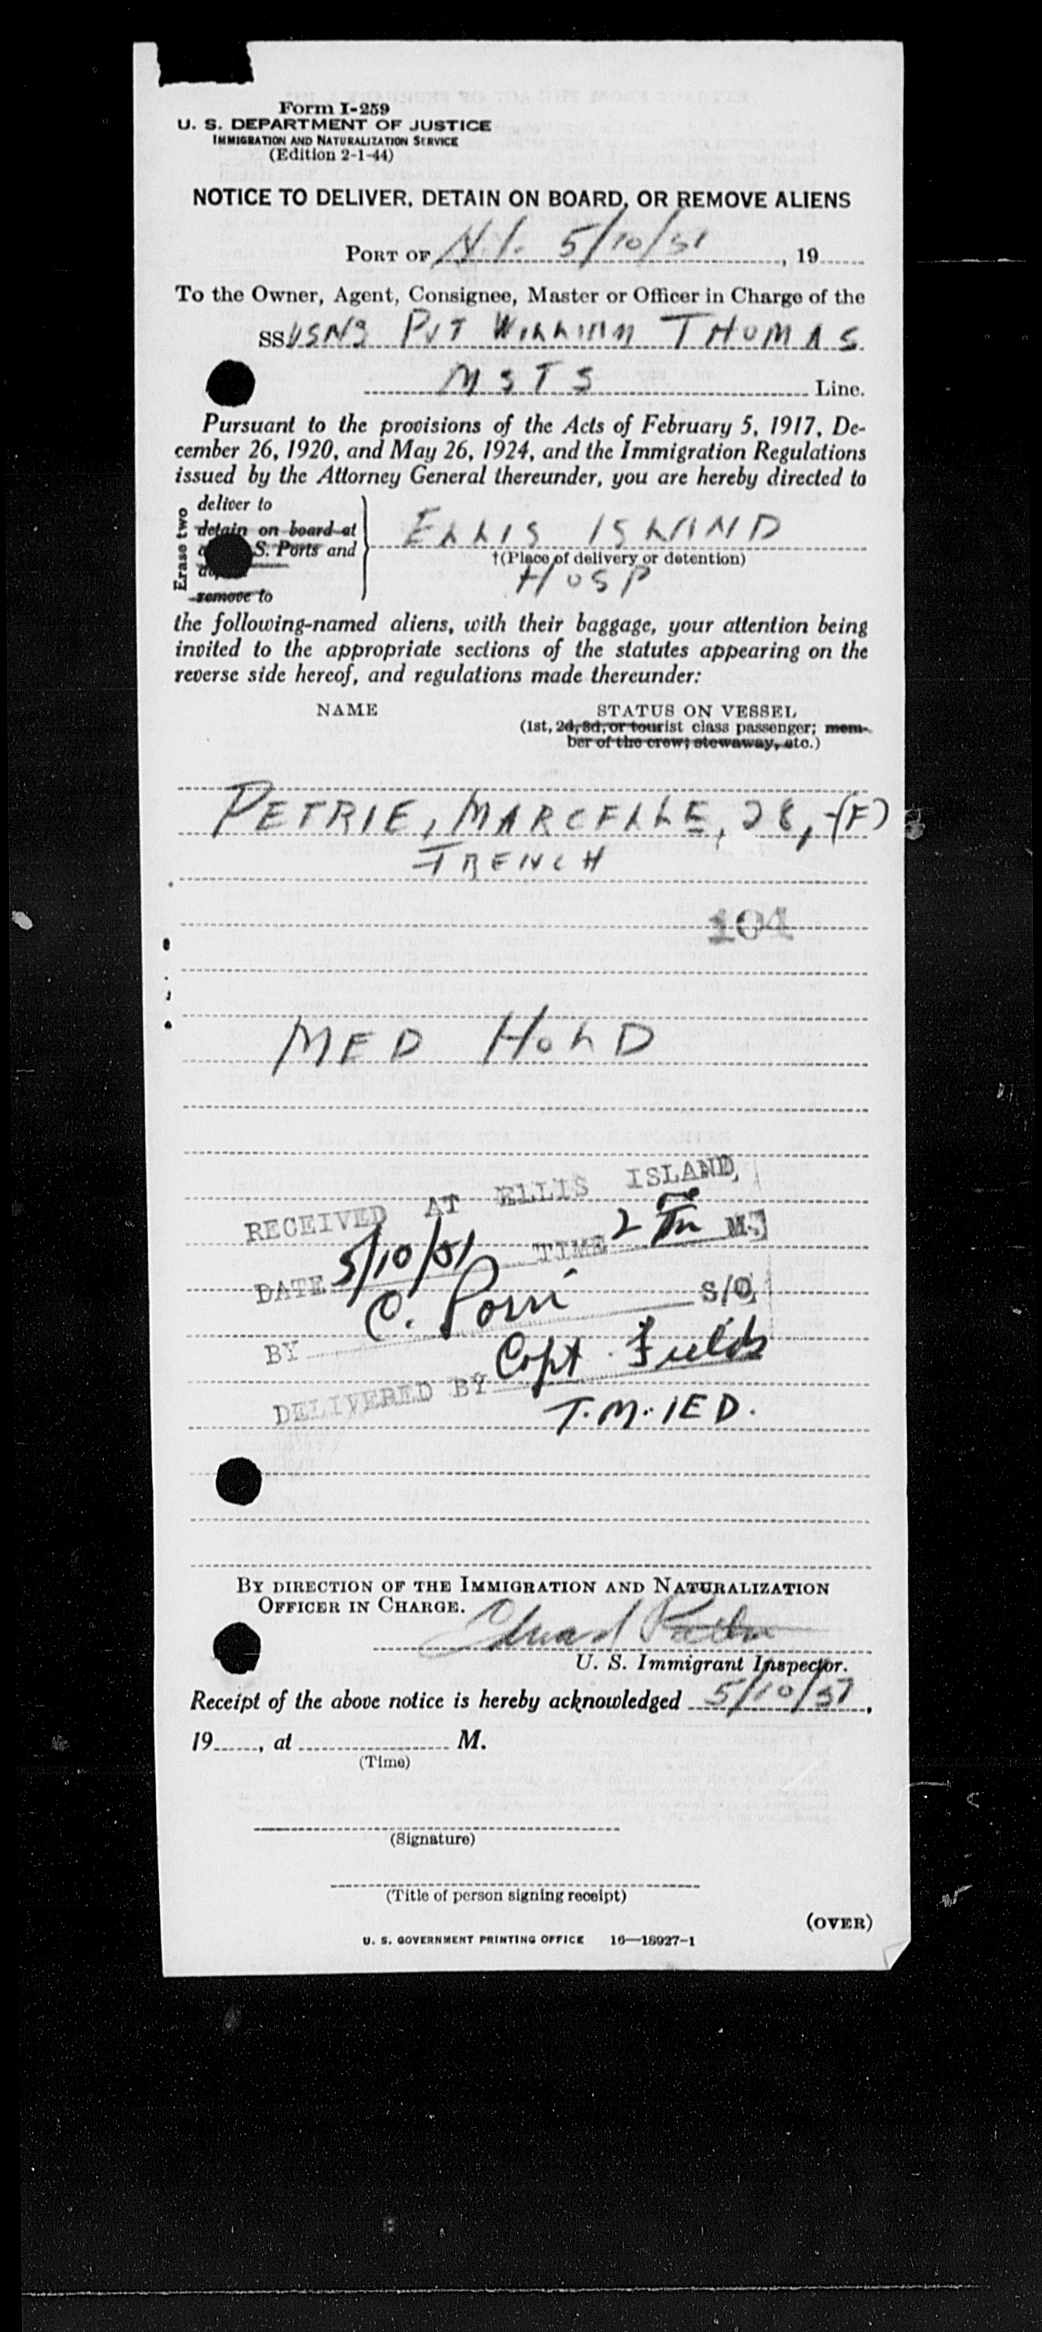 Form I-259
U. S. DEPARTMENT OF JUSTICE
IMMIGRATION AND NATURALIZATION SERVICE
(Edition 2-1-44)
NOTICE TO DELIVER, DETAIN ON BOARD, OR REMOVE ALIENS
PORT OF N.Y. 5/10/51, 19
To the Owner, Agent, Consignee, Master or Officer in Charge of the
SS USNS PVT WILLIAM THOMAS
MSTS Line.
Pursuant to the provisions of the Acts of February 5, 1917, De-
cember 26, 1920, and May 26, 1924, and the Immigration Regulations
issued by the Attorney General thereunder, you are hereby directed to
Erase two
deliver to
detain on board at
S. Ports and
remove to
ELLIS ISLAND
†(Place of delivery or detention)
HOSP
the following-named aliens, with their baggage, your attention being
invited to the appropriate sections of the statutes appearing on the
reverse side hereof, and regulations made thereunder:
NAME STATUS ON VESSEL
(1st, 2d, 3d, or tourist class passenger; mem-
ber of the crew; stowaway, etc.)
PETRIE, MARCELLE, 28, (F)
FRENCH
104
MED HOLD
RECEIVED AT ELLIS ISLAND,
DATE 5/10/51 TIME 2 M.
BY C. S/O,
DELIVERED BY Capt. Fields
T.M. IED.
BY DIRECTION OF THE IMMIGRATION AND NATURALIZATION
OFFICER IN CHARGE.
U. S. Immigrant Inspector.
Receipt of the above notice is hereby acknowledged 5/10/51,
19, at M.
(Time)
(Signature)
(Title of person signing receipt)
(OVER)
U. S. GOVERNMENT PRINTING OFFICE 16—18927-1